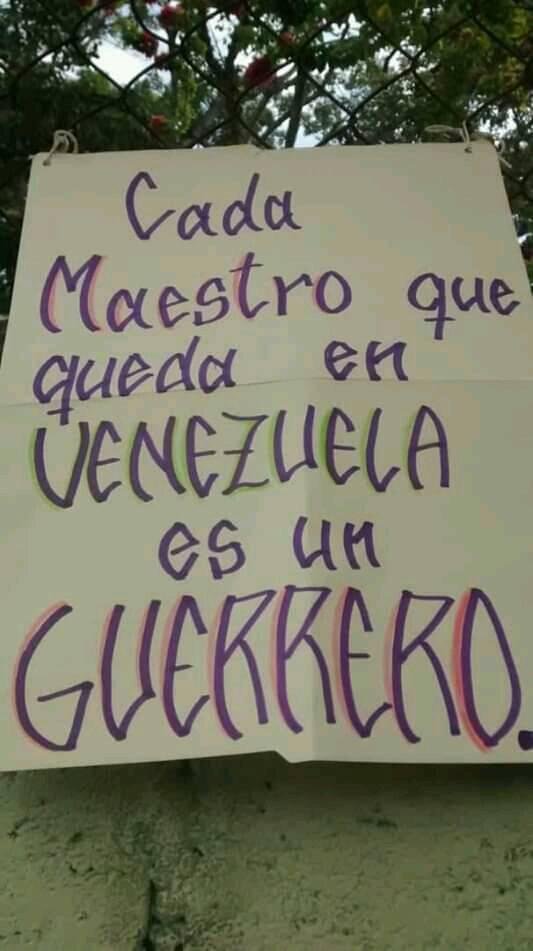 Cada
Maestro que
queda en
VENEZUELA
es un
GUERRERO.